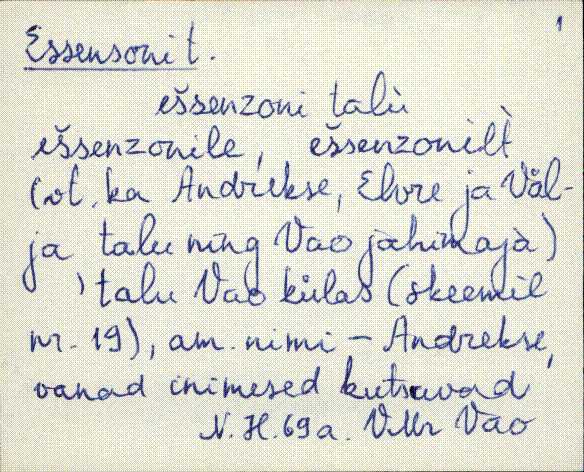 1
Essensoni t.
eššenzoni talù
eššenzonile, eššenzonìlt̀
(vt. ka Andrekse, Elvre ja Väl-
ja talu ning Vao jahimaja)
' talu Vao külas (skeemil
nr. 19), am. nimi – Andrekse,
vanad inimesed kutsuvad
N. H. 69 a. VMr Vao